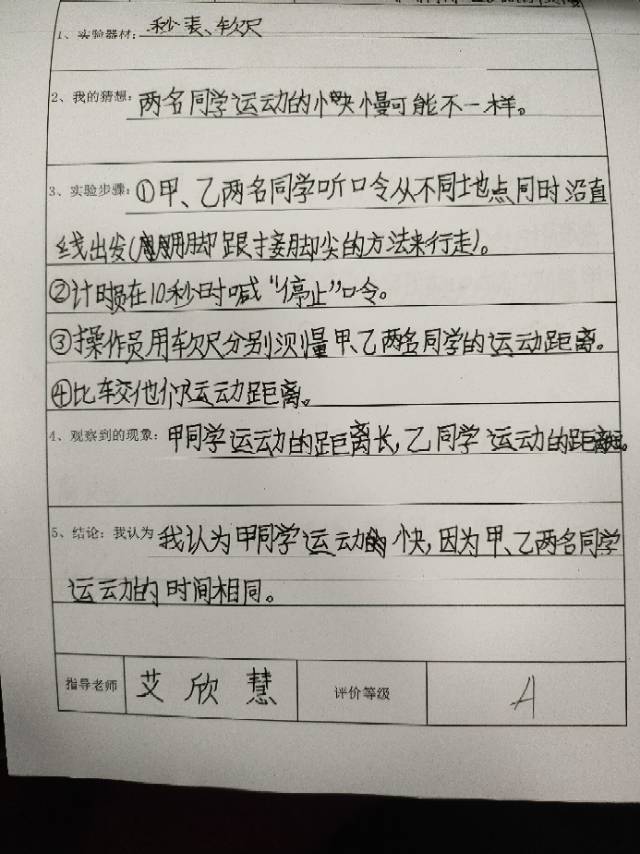 1、实验器材：秒表、软尺
2、我的猜想：两名同学运动的快慢可能不一样。
3、实验步骤：①甲、乙两名同学听口令从不同地点同时沿直
线出发(用脚跟接脚尖的方法来行走)。
②计时员在10秒时喊“停止”口令。
③操作员用软尺分别测量甲、乙两名同学的运动距离。
④比较他们运动距离。
4、观察到的现象：甲同学运动的距离长，乙同学运动的距离短。
5、结论：我认为 我认为甲同学运动的快，因为甲、乙两名同学
运动的时间相同。
指导老师 艾欣慧 评价等级 A